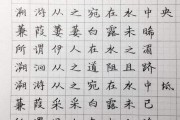 溯游从之宛在水中央
蒹葭萋萋白露未晞
所谓伊人在水之湄
溯洄从之道阻且跻
溯游从之宛在水中坻
蒹葭采采白露未已